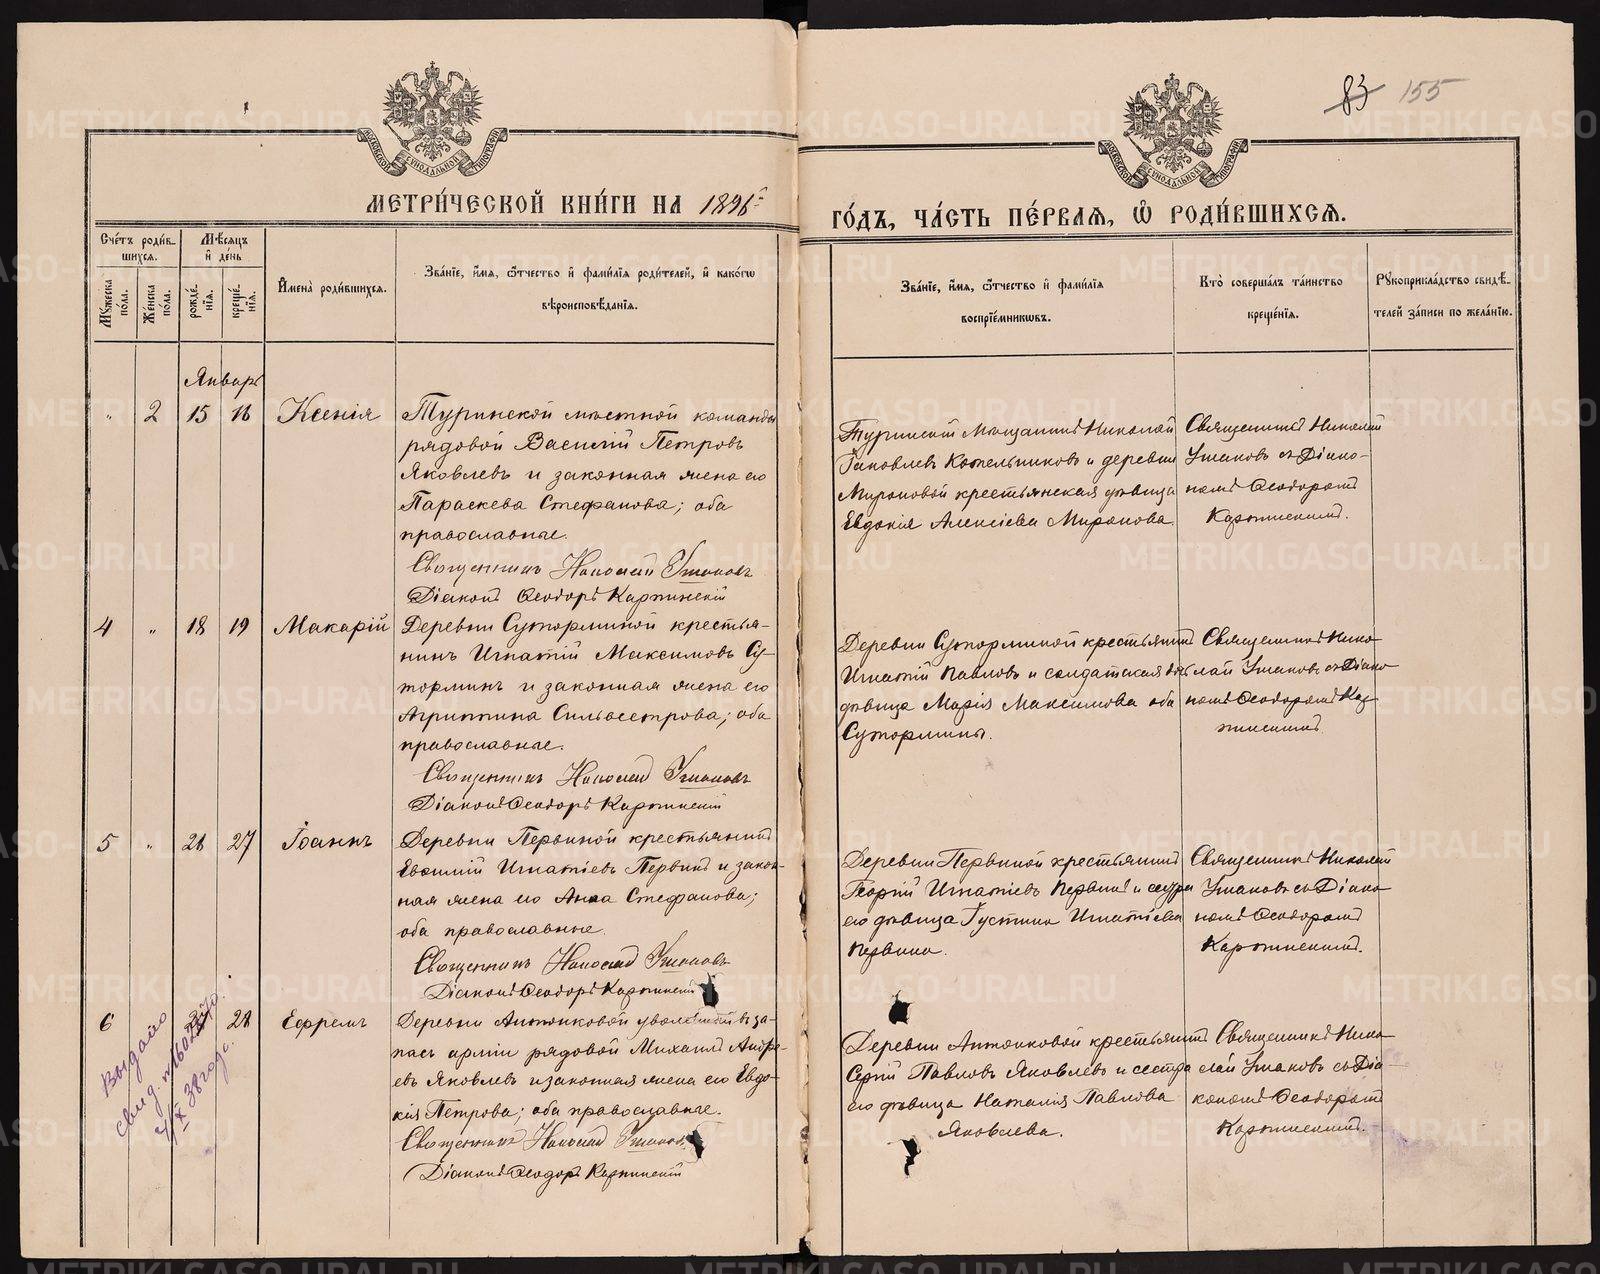 83 155
МОСКОВСКОЙ СѴНОДАЛЬНОЙ ТИПОГРАФІИ
МОСКОВСКОЙ СѴНОДАЛЬНОЙ ТИПОГРАФІИ
МЕТРИ́ЧЕСКОЙ КНИ́ГИ НА 1896й
ГО́ДЪ, ЧА́СТЬ ПЕ́РВАЯ, Ѡ҆ РОДИ́ВШИХСЯ.
Сче́тъ роди́в-
шихся.
Мѣ́сяцъ
и҆ де́нь
Мꙋ́жеска по́ла.
Же́нска по́ла.
рожде́нїя.
креще́нїя.
И҆мена̀ роди́вшихся.
Зва́нїе, и҆́мя, ѻ҆́тчество и҆ фами́лїя роди́телей, и҆ како́гѡ
вѣроисповѣ́данїя.
Зва́нїе, и҆́мя, ѻ҆́тчество и҆ фами́лїя
воспрїе́мникѡвъ.
Кто̀ соверша́лъ та́инство
креще́нїя.
Рꙋкоприкла́дство свидѣ́-
телей за́писи по жела́нїю.
Январь
" 2 15 16 Ксенія
Туринской мѣстной команды
рядовой Василій Петровъ
Яковлевъ и законная жена его
Параскева Стефанова; оба
православные.
Священникъ Николай Ушаковъ
Діаконъ Ѳеодоръ Карпинскій
Туринскій мѣщанинъ Николай
Іаковлевъ Котельниковъ и деревни
Мироновой крестьянская дѣвица
Евдокія Алексіева Миронова
Священникъ Николай
Ушаковъ съ Діако-
номъ Ѳеодоромъ
Карпинскимъ.
4 " 18 19 Макарій
Деревни Суторминой крестья-
нинъ Игнатій Максимовъ Су-
торминъ и законная жена его
Агриппина Сильвестрова; оба
православные.
Священникъ Николай Ушаковъ
Діаконъ Ѳеодоръ Карпинскій
Деревни Суторминой крестьянинъ
Игнатій Павловъ и солдатская
дѣвица Марія Максимова оба
Сутормины.
Священникъ Нико-
лай Ушаковъ съ Діако-
номъ Ѳеодоромъ Кар-
пинскимъ
5 " 26 27 Іоаннъ
Деревни Первиной крестьянинъ
Евсимій Игнатіевъ Первинъ и закон-
ная жена его Анна Стефанова;
оба православные.
Священникъ Николай Ушаковъ
Діаконъ Ѳеодоръ Карпинскій
Деревни Первиной крестьянинъ
Георгій Игнатіевъ Первинъ и сестра
его дѣвица Іустина Игнатіева
Первина.
Священникъ Николай
Ушаковъ съ Діако-
номъ Ѳеодоромъ
Карпинскимъ.
6 28 Ефремъ
Деревни Антоновой уволенный въ за-
пасъ арміи рядовой Михаилъ Андре-
евъ Яковлевъ и законная жена его Евдо-
кія Петрова; оба православные.
Священникъ Николай Ушаковъ
Діаконъ Ѳеодоръ Карпинскій
Деревни Антоновой крестьянинъ
Сергій Павловъ Яковлевъ и сестра
его дѣвица Наталія Павлова
Яковлева.
Священникъ Нико-
лай Ушаковъ съ Діа-
кономъ Ѳеодоромъ
Карпинскимъ.
Выдано
свид.
4/IX 38 года.
METRIKI.GASO-URAL.RU